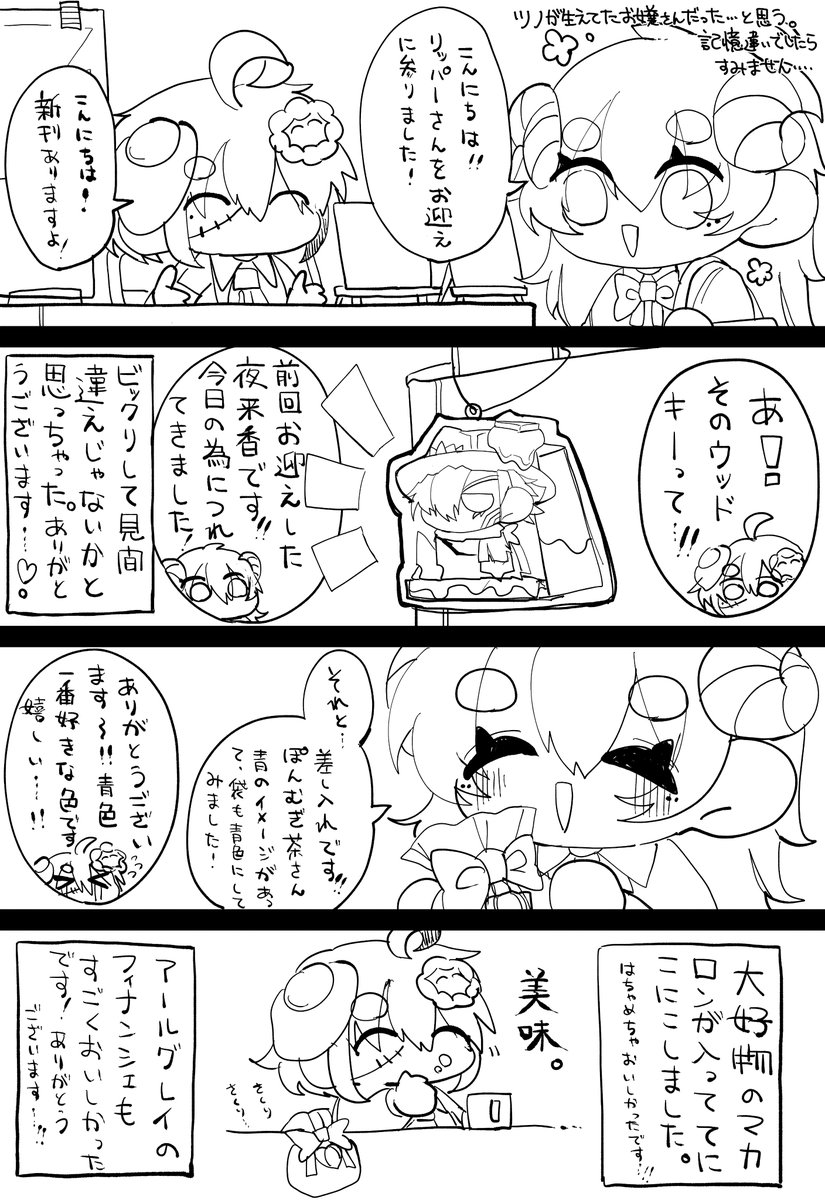 ツノが生えてたお嬢さんだった…と思う。
記憶違いでしたら
すみません….
こんにちは!!
リッパーさんをお迎え
に参りました!
こんにちは!
新刊ありますよ!
あ!!
そのウッド
キーって…!!
前回お迎えした
夜来香です!!
今日の為につれ
てきました!
ビックリして見間
違えじゃないかと
思っちゃった。ありがと
うございます…♡。
それと…
差し入れです!!
ぽんむぎ茶さん
青のイメージがあっ
て、袋も青色にして
みました!
ありがとうござい
ます〜!!青色
一番好きな色です
嬉しい…!!
大好物のマカ
ロンが入っててに
こにこしました。
はちゃめちゃおいしかったです!!!
美味。
さくり
さくり…
アールグレイの
フィナンシェも
すごくおいしかった
です!ありがとう
ございます…!!